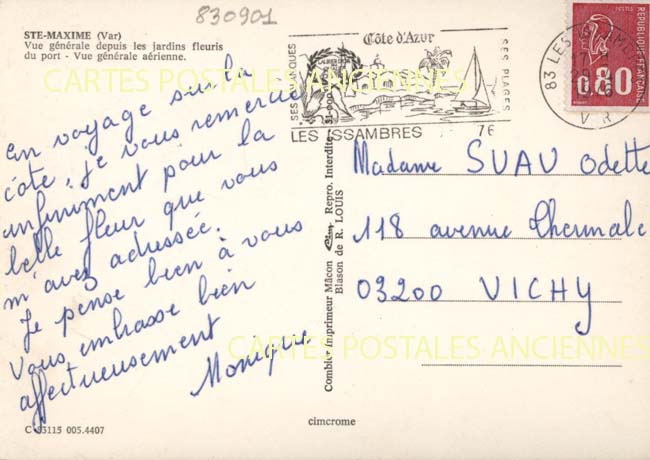 830901
STE-MAXIME (Var)
Vue générale depuis les jardins fleuris
du port - Vue générale aérienne.
En voyage sur la
côte, je vous remercie
infiniment pour la
belle fleur que vous
m'avez adressée.
Je pense bien à vous
Vous embrasse bien
affectueusement
Monique
C 83115 005.4407
Combier imprimeur Mâcon Cim Repro. Interdite
Blason de R. LOUIS
cimcrome
Côte d'Azur
SES PLAGES
LES ISSAMBRES
76
83 LES
VAR
0,80
POSTES
REPUBLIQUE FRANÇAISE
Madame SUAU Odette
118 avenue Thermale
03200 VICHY
CARTES POSTALES ANCIENNES
CARTES POSTALES ANCIENNES